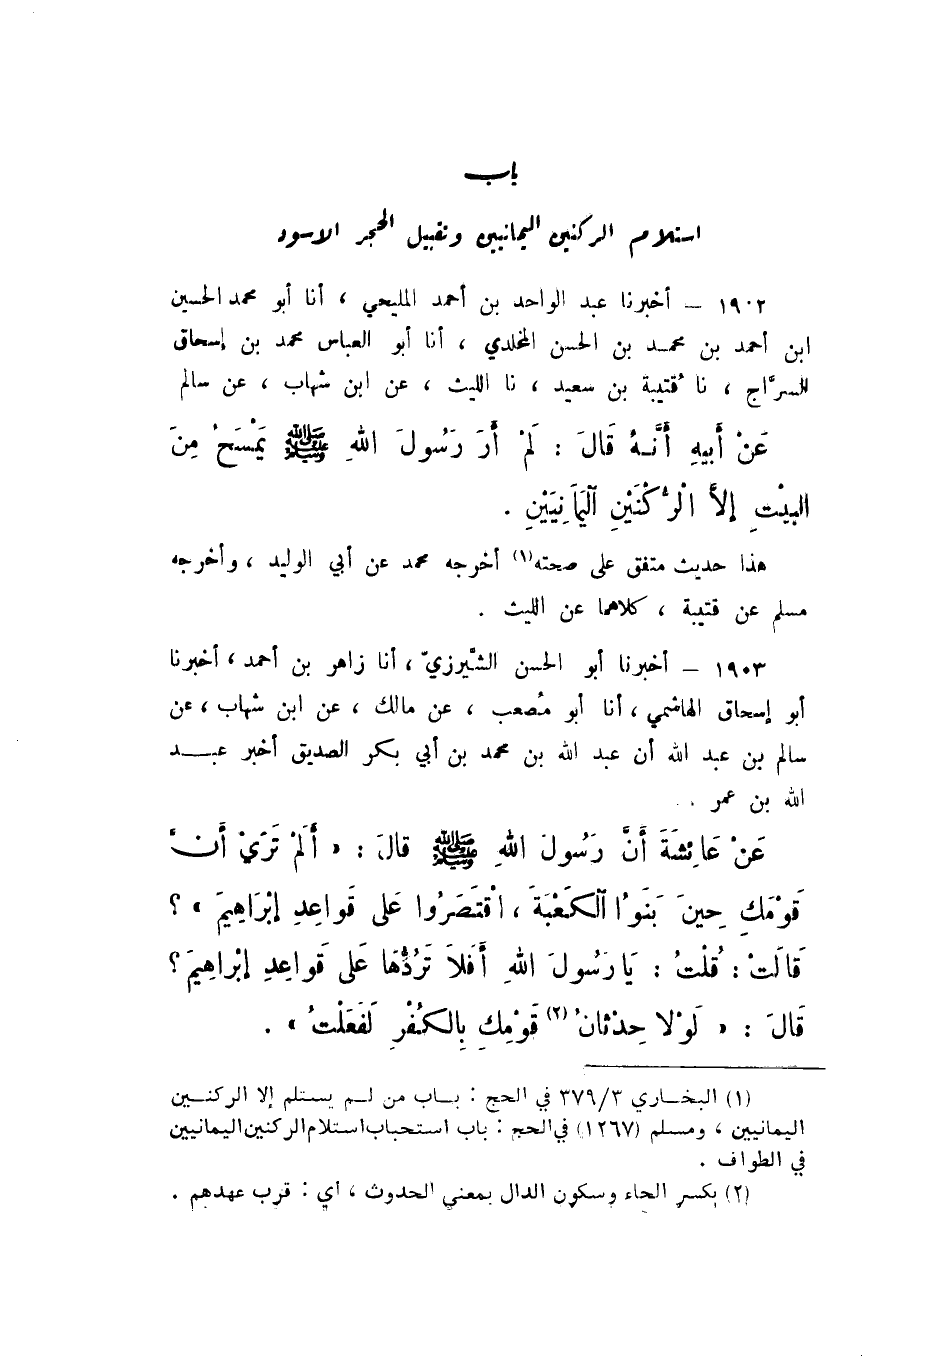 باب
استلام الركنين اليمانيين وتقبيل الحجر الاسود
١٩٠٢ – أخبرنا عبد الواحد بن أحمد المليحي ، أنا أبو محمد الحسين
ابن أحمد بن محمد بن الحسن المخلدي ، أنا أبو العباس محمد بن إسحاق
السرَّاج ، نا قُتيبة بن سعيد ، نا الليث ، عن ابن شهاب ، عن سالم
عَنْ أَبِيهِ أَنَّهُ قَالَ : لَمْ أَرَ رَسُولَ اللهِ ﷺ يَمْسَحُ مِنَ
البيْتِ إلاَّ الْرُكْنَيْنِ اٰليَمَانِيَيْنِ .
هذا حديث متفق على صحته(١) أخرجه محمد عن أبي الوليد ، وأخرجه
مسلم عن قتيبة ، كلاهما عن الليث .
١٩٠٣ – أخبرنا أبو الحسن الشَّيرزيّ ، أنا زاهر بن أحمد ، أخبرنا
أبو إسحاق الهاشمي ، أنا أبو مُصعب ، عن مالك ، عن ابن شهاب ، عن
سالم بن عبد الله أن عبد الله بن محمد بن أبي بكر الصديق أخبر عبد
الله بن عمر .
عَنْ عَائِشَةَ أَنَّ رَسُولَ اللهِ ﷺ قالَ : « أَلَمْ تَرَيْ أَنَّ
قَوْمَكِ حِينَ بَنَوُا اٰلكَعْبَةَ ، اقْتَصَرُوا عَلى قَواعِدِ إبْرَاهِيمَ » ؟
قَالَتْ : قُلْتُ : يَا رَسُولَ اللهِ أَفَلاَ تَرُدُّهَا عَلى قَواعِدِ إبْرَاهِيمَ ؟
قَالَ : « لَوْلا حِدْثانُ(٢) قَوْمِكِ بِالكُفْرِ لَفَعَلْتُ » .
(١) البخاري ٣٧٩/٣ في الحج : باب من لم يستلم إلا الركنين
اليمانيين ، ومسلم (١٢٦٧) في الحج : باب استحباب استلام الركنين اليمانيين
في الطواف .
(٢) بكسر الحاء وسكون الدال بمعنى الحدوث ، أي : قرب عهدهم .